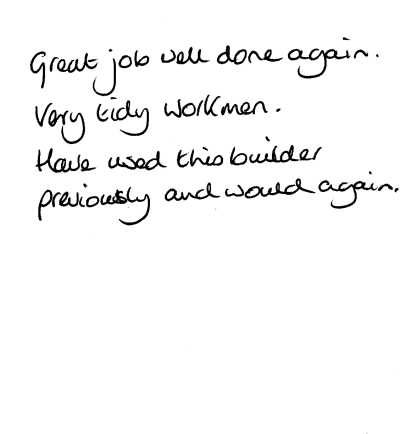 Great job well done again.
Very tidy workmen.
Have used this builder
previously and would again.